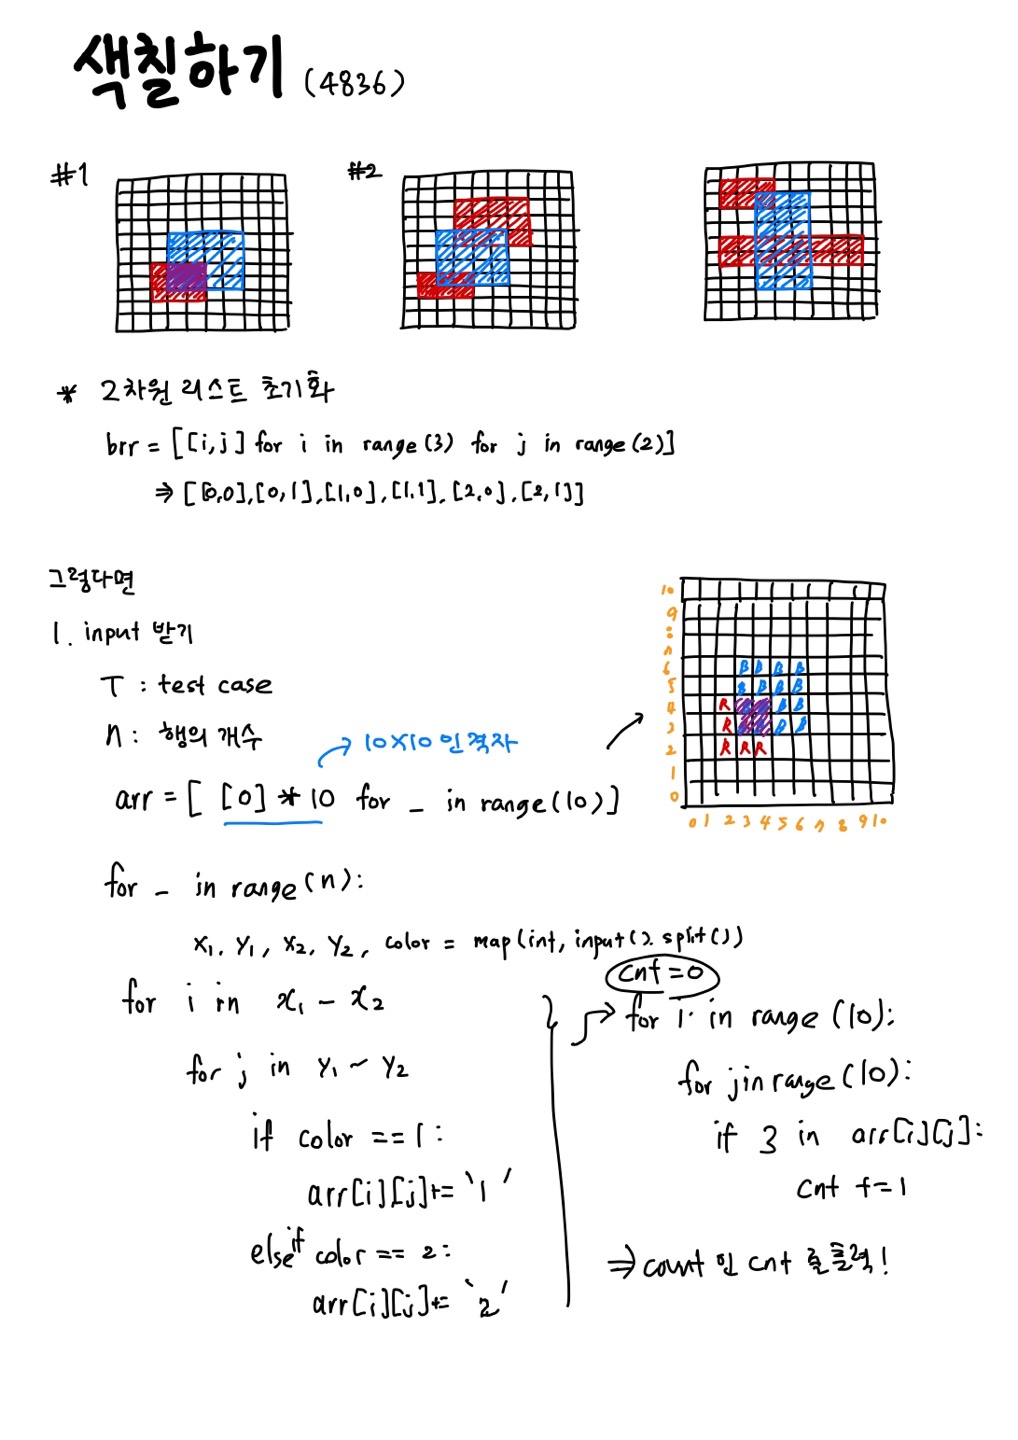 색칠하기 (4836)
#1
#2
* 2차원 리스트 초기화
brr = [[i,j] for i in range(3) for j in range(2)]
⇒ [[0,0],[0,1],[1,0],[1,1],[2,0],[2,1]]
그렇다면
1. input 받기
T : test case
n : 행의 개수
→ 10X10 인 격자
arr = [ [0] * 10 for _ in range(10)]
10
9
:
7
6 B B B B
5 B B B B
4 R B B
3 R B B
2 R R R
1
0
0 1 2 3 4 5 6 7 8 9 10
for _ in range(n):
x1, y1, x2, y2, color = map(int, input().split())
for i in x1 - x2
for j in y1 ~ y2
if color == 1:
arr[i][j]+= '1'
elseif color == 2:
arr[i][j]+= '2'
cnt = 0
→ for i in range(10):
for j in range(10):
if 3 in arr[i][j]:
cnt += 1
⇒ count 인 cnt 를 출력!